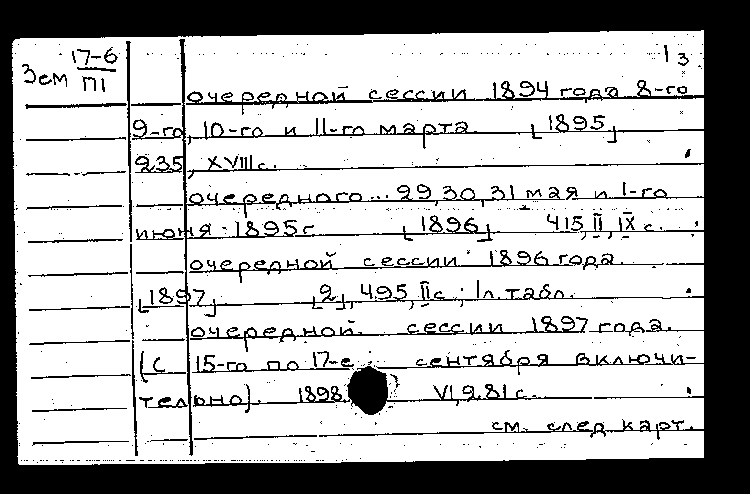 17-6 13
Зем П1
очередной сессии 1894 года 8-го
9-го, 10-го и 11-го марта [1895]
235, XVIII с.
очередного... 29, 30, 31 мая и 1-го
июня 1895 г [1896] 415, II, IX с.
очередной сессии 1896 года.
[1897] [2], 495, II с; 1 л. табл.
очередной сессии 1897 года.
(с 15-го по 17-е сентября включи-
тельно). 1898 VI, 281 с.
см. след карт.